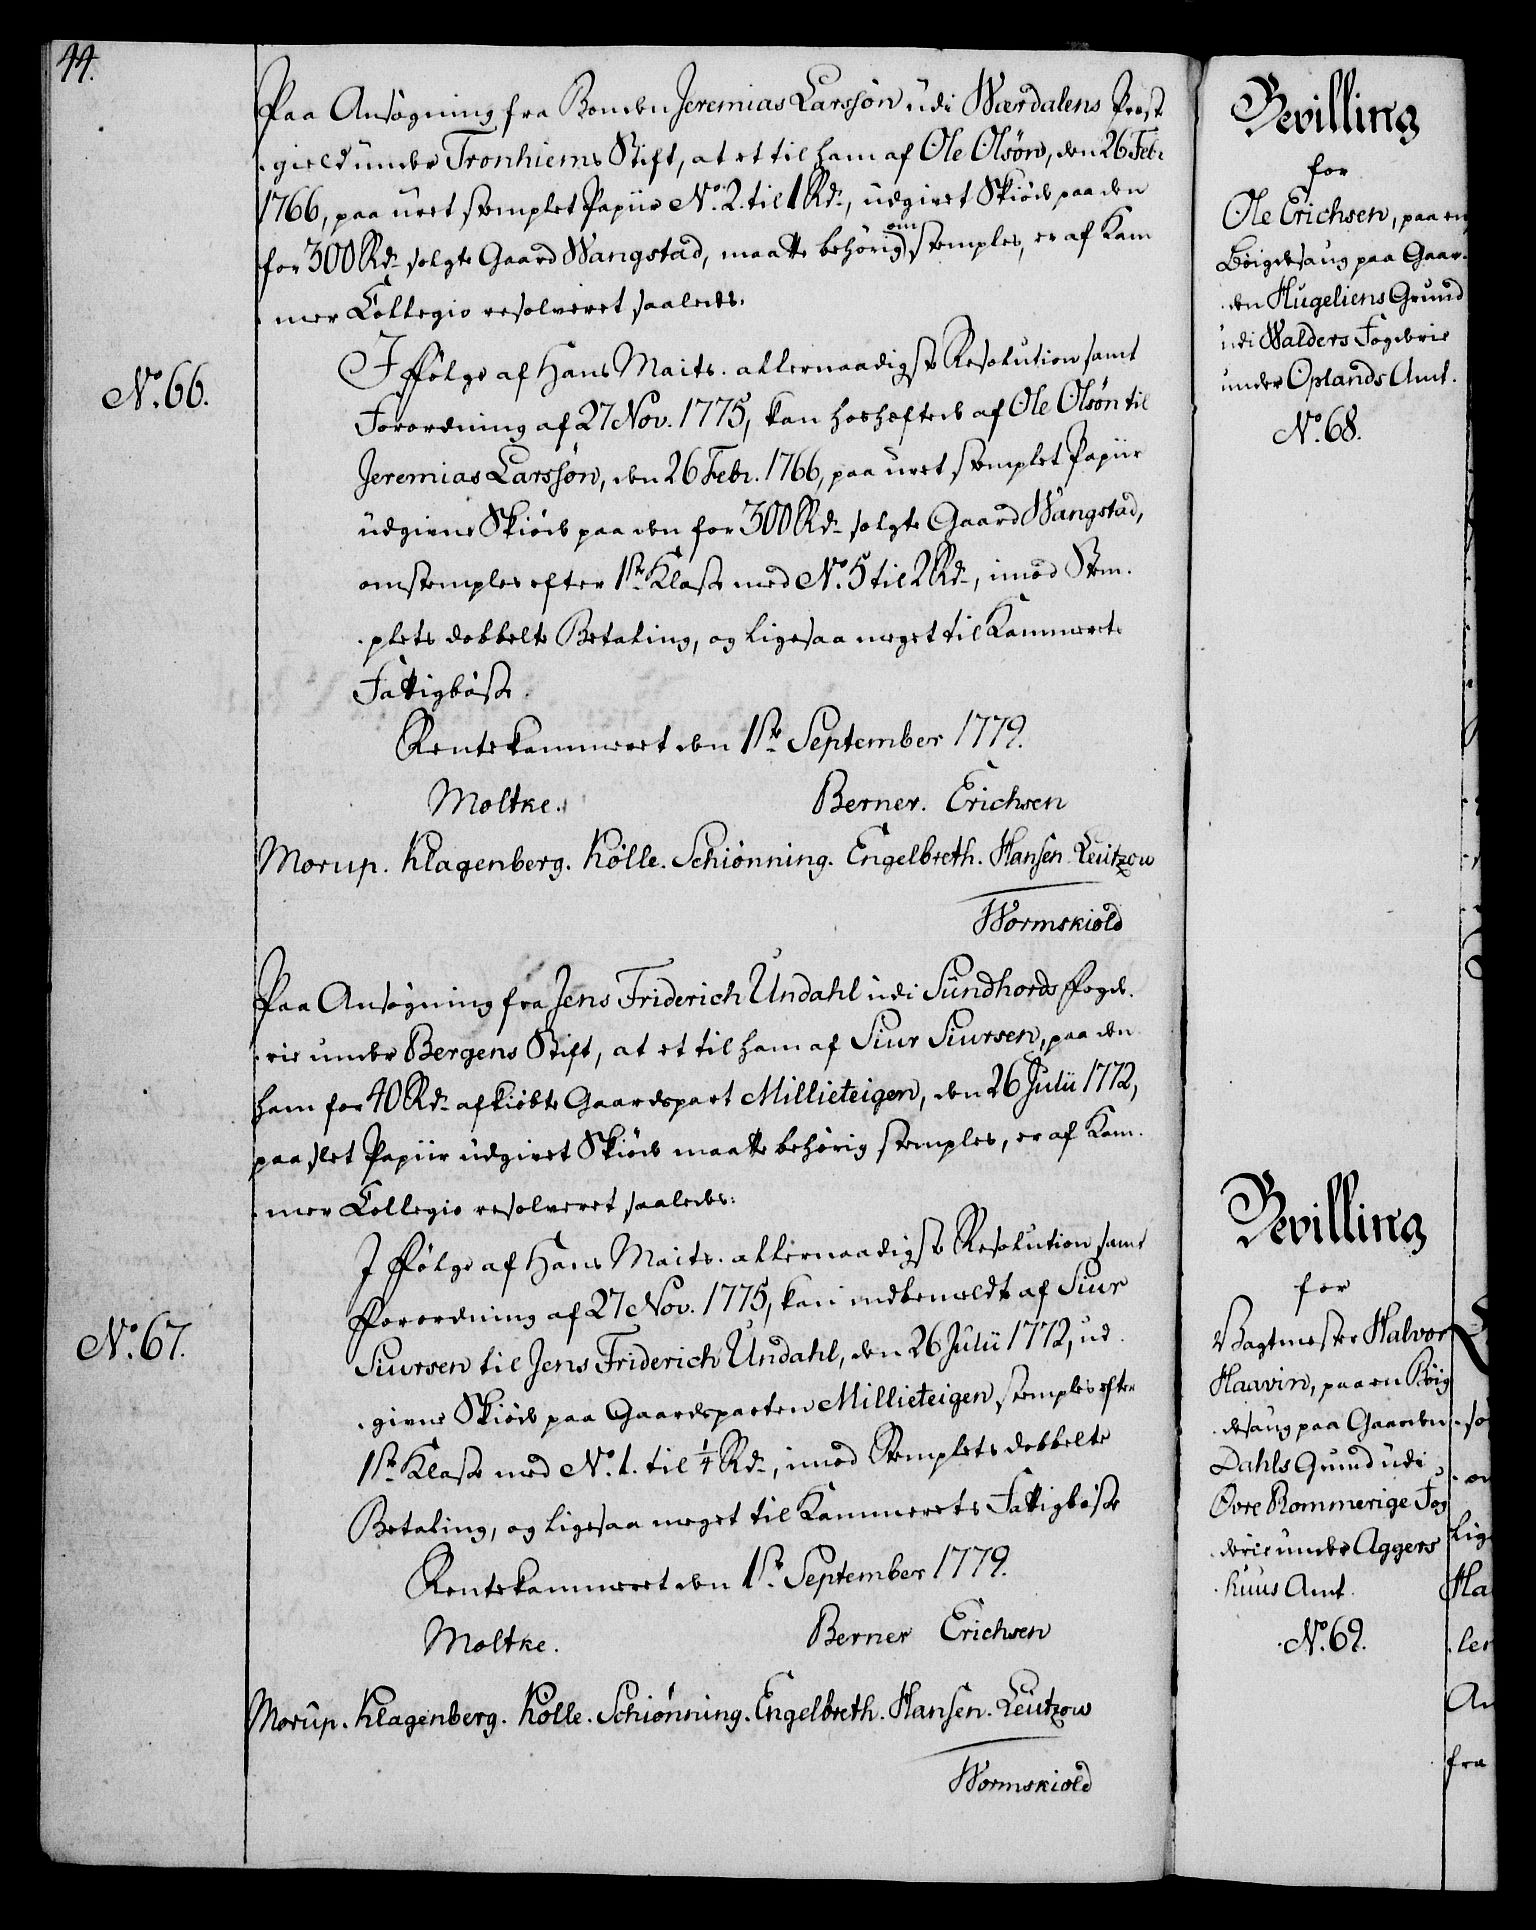 44.
Paa Ansøgning fra Bonden Jeremias Larssøn udi Wærdalens Præste
gield under Tronhiems Stift, at et til ham af Ole Olsøn, den 26 Febr.
1766, paa uret stemplet Papiir No. 2. til 1 Rd., udgivet Skiøde paa den
for 300 Rd. solgte Gaard Wangstad, maatte behørig omstemples, er af Kam
mer Collegio resolveret saaledes.
No. 66.
I Følge af Hans Maits. allernaadigste Resolution samt
Forordning af 27 Nov. 1775, kan hoshæftede af Ole Olsøn til
Jeremias Larssøn, den 26 Febr. 1766, paa uret stemplet Papiir
udgivne Skiøde paa den for 300 Rd. solgte Gaard Wangstad,
omstemples efter 1ste Klasse med No. 5 til 2 Rd., imod Stem-
plets dobbelte Betaling, og ligesaa meget til Kammerets
Fattigbøsse.
Rentekammeret den 1ste September 1779.
Moltke. Berner. Erichsen
Morup. Klagenberg. Kölle. Schiønning. Engelbreth. Hansen. Leützow
Wormskiold
Paa Ansøgning fra Jens Friderich Undahl udi Sundhords Foged-
rie under Bergens Stift, at et til ham af Siur Siursen, paa den
ham for 40 Rd. afkiøbte Gaardspart Millieteigen, den 26 Julii 1772,
paa slet Papiir udgivet Skiøde maatte behørig stemples, er af Kam-
mer Collegio resolveret saaledes:
No. 67.
I Følge af Hans Maits. allernaadigste Resolution samt
Forordning af 27 Nov. 1775, kan indbemeldte af Siur
Siursen til Jens Friderich Undahl, den 26 Julii 1772, ud-
givne Skiøde paa Gaardsparten Millieteigen stemples efter
1ste Klasse med No. 1. til 1/4 Rd., imod Stemplets dobbelte
Betaling, og ligesaa meget til Kammerets Fattigbøsse
Rentekammeret den 1ste September 1779.
Moltke. Berner Erichsen
Morup. Klagenberg. Kölle. Schiønning. Engelbreth. Hansen. Leützow
Wormskiold
Bevilling
for
Ole Erichsen, paa en
Böigdesaug paa Gaar-
den Hugeliens Grund
udi Walders Fogderie
under Oplands Amt.
No. 68.
Bevilling
for
Vagtmester Halvor
Haavin, paa en Böig
desaug paa Gaarden
Dahls Grund udi
Øvre Rommerige Fog
derie under Aggers
huus Amt.
No. 69.
Ha
ler
An
fra